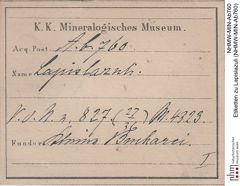 K. K. Mineralogisches Museum.
Acq. Post. A. b. 760
Name Lapislazuli.
V. D. N. 827 (22/) M. 4323.
Fundort Bucharei
I
NHMW-MIN-Ab760
Etiketten zu Lapislazuli (NHMW-MIN-Ab760)